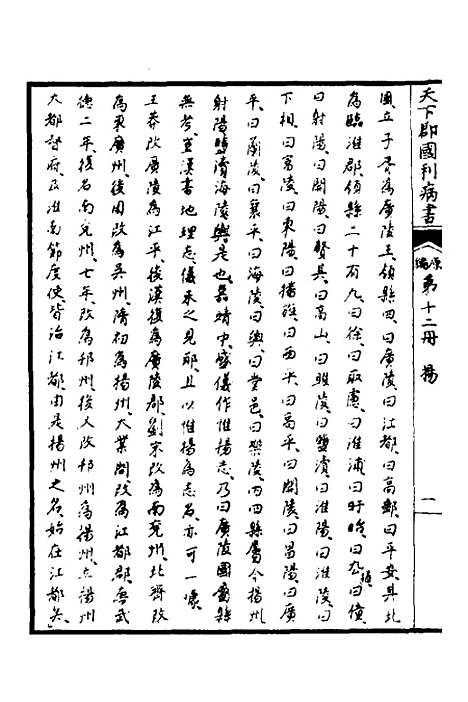 天下郡國利病書
原編 第十二册 揚
一
國立子胥為廣陵王領縣四曰廣陵曰江都曰高郵曰平安其北
為臨淮郡領縣二十有九曰徐曰取慮曰淮浦曰盱眙曰厹猶曰僮
曰射陽曰開陽曰贅其曰高山曰睢陵曰鹽瀆曰淮陽曰淮陵曰
下相曰富陵曰東陽曰播旌曰西平曰高平曰開陵曰昌陽曰廣
平曰蘭陵曰襄平曰海陵曰輿曰堂邑曰樂陵內四縣屬今揚州
射陽鹽瀆海陵輿是也嘉靖中盛儀作惟揚志乃曰廣陵國屬縣
無考豈漢書地理志儀未之見耶且以惟揚為志名亦可一噱
王莽改廣陵為江平後漢復為廣陵郡劉宋改為南兗州北齊改
為東廣州後周改為吳州隋初為揚州大業間改為江都郡唐武
德二年復名南兗州七年改為邗州後又改邗州為揚州立揚州
大都督府及淮南節度使皆治江都由是揚州之名始在江都矣